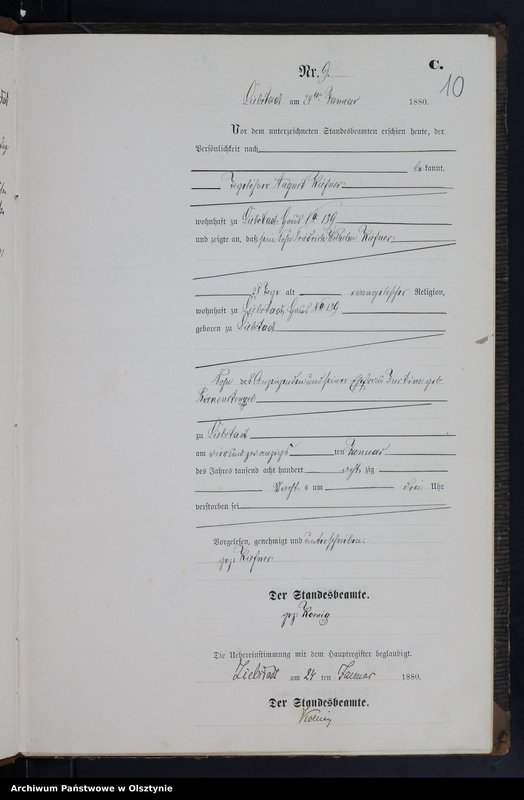 C.
10
Nr. 9.
Liebstadt am 24ten Januar 1880.
Vor dem unterzeichneten Standesbeamten erschien heute, der
Persönlichkeit nach
bekannt,
Tagelöhner August Kiefner
wohnhaft zu Liebstadt Haus No 139
und zeigte an, daß sein Sohn Friedrich Wilhelm Kiefner
28 Tage alt evangelischer Religion,
wohnhaft zu Liebstadt Haus No 139
geboren zu Liebstadt
Sohn des Anzeigenden und seiner Ehefrau Justine geb.
zu Liebstadt
am vierundzwanzigs ten Januar
des Jahres tausend acht hundert acht zig
Nachts um drei Uhr
verstorben sei
Vorgelesen, genehmigt und unterschrieben.
gez. Kiefner
Der Standesbeamte.
gez. Koenig
Die Uebereinstimmung mit dem Hauptregister beglaubigt.
Liebstadt am 24 ten Januar 1880.
Der Standesbeamte.
Koenig
Archiwum Państwowe w Olsztynie